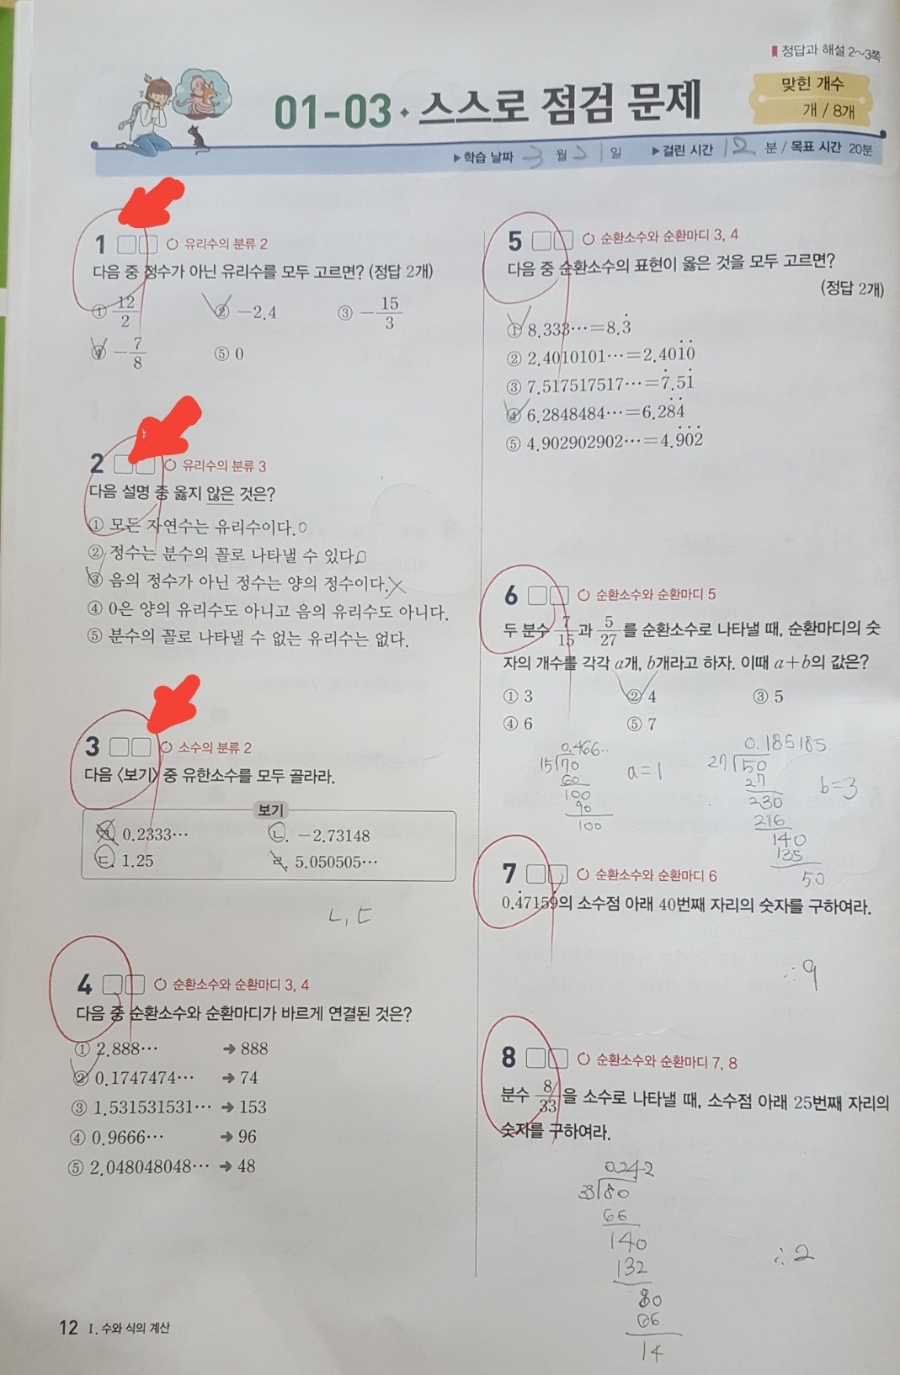 정답과 해설 2~3쪽
01-03 스스로 점검 문제
맞힌 개수
개 / 8개
▶학습 날짜 3월 2일 ▶걸린 시간 12분 / 목표 시간 20분
1 유리수의 분류 2
다음 중 정수가 아닌 유리수를 모두 고르면? (정답 2개)
① 12/2 ② -2.4 ③ -15/3
④ -7/8 ⑤ 0
2 유리수의 분류 3
다음 설명 중 옳지 않은 것은?
① 모든 자연수는 유리수이다. O
② 정수는 분수의 꼴로 나타낼 수 있다. O
③ 음의 정수가 아닌 정수는 양의 정수이다. X
④ 0은 양의 유리수도 아니고 음의 유리수도 아니다.
⑤ 분수의 꼴로 나타낼 수 없는 유리수는 없다.
3 소수의 분류 2
다음 〈보기〉 중 유한소수를 모두 골라라.
보기
ㄱ. 0.2333⋯ ㄴ. -2.73148
ㄷ. 1.25 ㄹ. 5.050505⋯
ㄴ, ㄷ
4 순환소수와 순환마디 3, 4
다음 중 순환소수와 순환마디가 바르게 연결된 것은?
① 2.888⋯ ➔ 888
② 0.1747474⋯ ➔ 74
③ 1.531531531⋯ ➔ 153
④ 0.9666⋯ ➔ 96
⑤ 2.048048048⋯ ➔ 48
12 Ⅰ. 수와 식의 계산
5 순환소수와 순환마디 3, 4
다음 중 순환소수의 표현이 옳은 것을 모두 고르면?
(정답 2개)
① 8.333⋯=8.3̇
② 2.4010101⋯=2.401̇0̇
③ 7.517517517⋯=7̇.51̇
④ 6.2848484⋯=6.28̇4̇
⑤ 4.902902902⋯=4.9̇0̇2̇
6 순환소수와 순환마디 5
두 분수 7/15과 5/27를 순환소수로 나타낼 때, 순환마디의 숫
자의 개수를 각각 a개, b개라고 하자. 이때 a+b의 값은?
① 3 ② 4 ③ 5
④ 6 ⑤ 7
0.466..
15 70
60
100
90
100
a=1
0.185185
27 50
27
230
216
140
135
50
b=3
7 순환소수와 순환마디 6
0.4̇7159̇의 소수점 아래 40번째 자리의 숫자를 구하여라.
∴9
8 순환소수와 순환마디 7, 8
분수 8/33을 소수로 나타낼 때, 소수점 아래 25번째 자리의
숫자를 구하여라.
0.242
33 80
66
140
132
80
66
14
∴2